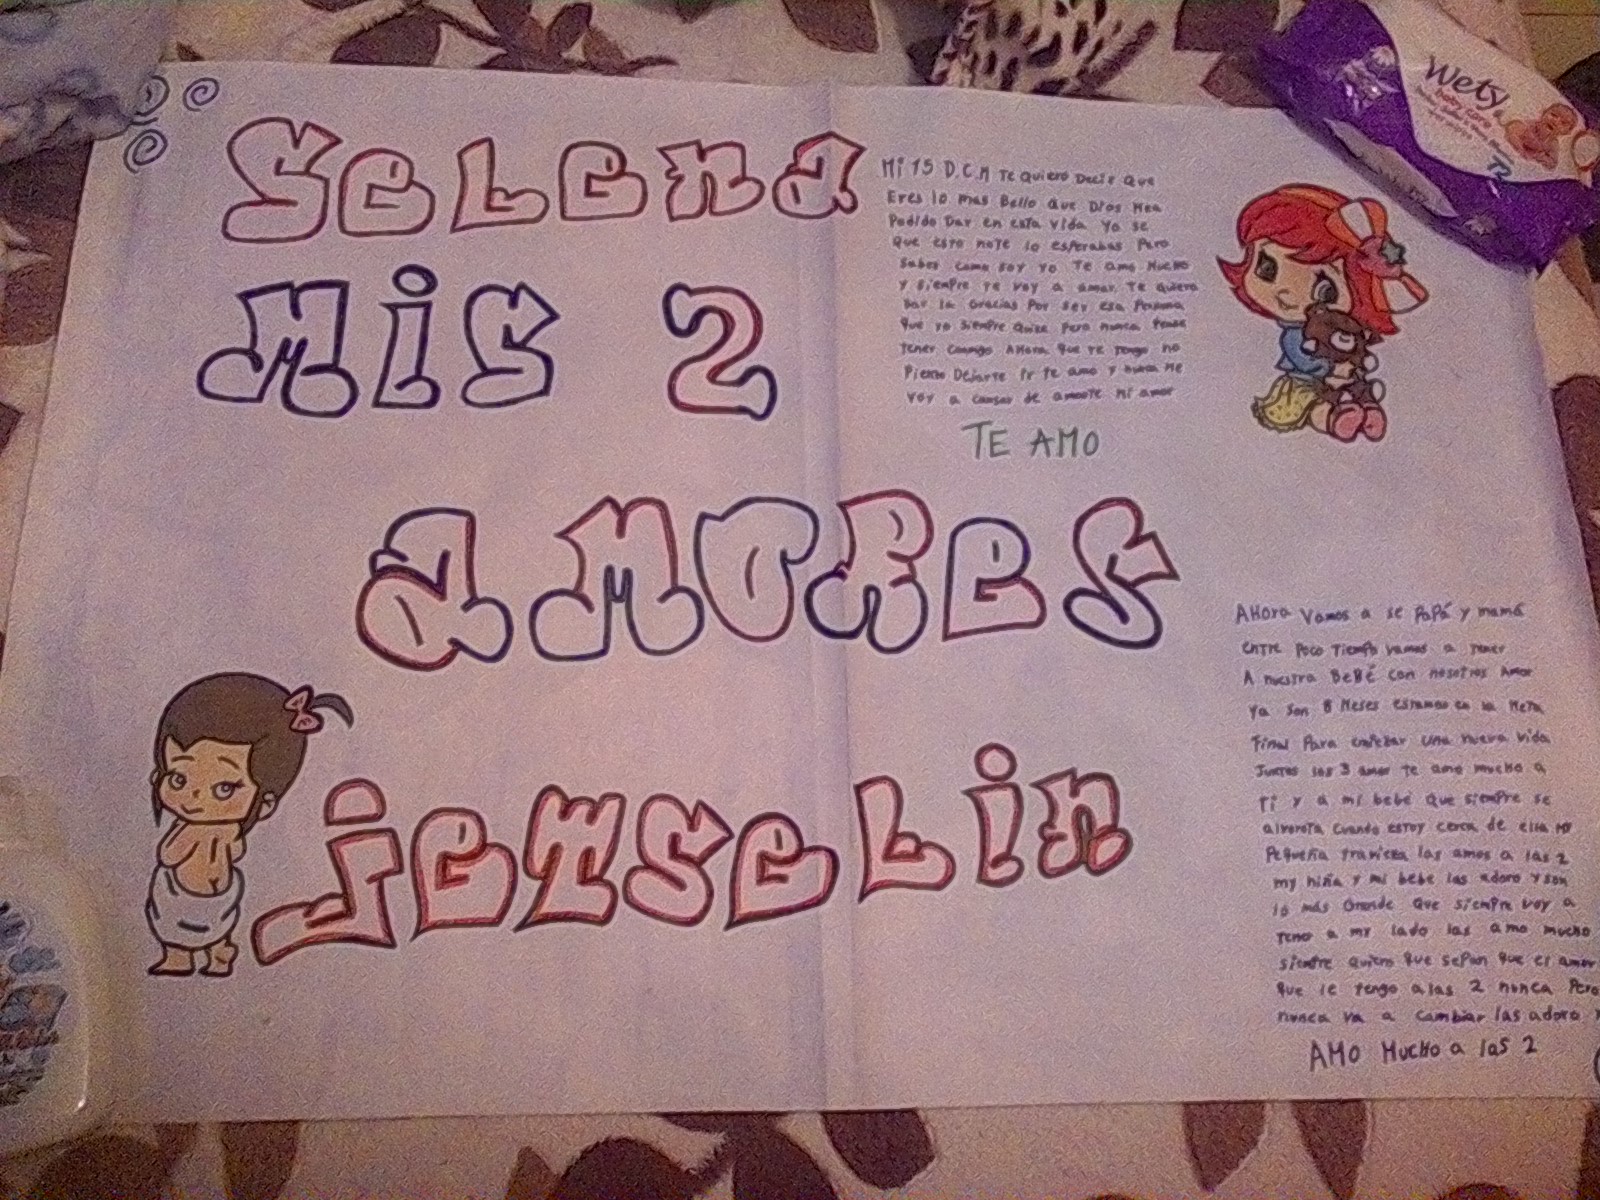 Selena
Mis 2
amores
jetselin
Mi 15 D.C.M Te Quiero Decir Que
Eres lo mas Bello Que Dios Mea
Podido Dar en esta vida Yo se
Que esto note lo esperabas Pero
Sabes Como Soy yo Te amo Mucho
y siempre te voy a amar. Te quiero
Dar la Gracias Por ser esa Persona
Que yo siempre Quise Pero nunca Pense
Tener Conmigo AHora Que Te Tengo no
Pienso Dejarte Ir te amo y nunca Me
Voy a Cansar de amarte Mi amor
TE AMO
AHora Vamos a se PaPá y mamá
ENTRE Poco Tiempo Vamos a Tener
A nuestra BeBé Con nosotros Amor
Ya Son 8 Meses estamos en la Meta
Final Para empezar Una nueva vida
Juntos los 3 amor te amo mucho a
Ti y a mi bebé Que siempre se
alvorota Cuando estoy cerca de ella Mi
Pequeña traviesa las amos a las 2
my niña y mi bebe las adoro y son
lo más Grande Que siempre voy a
Tener a my lado las amo mucho
siempre quiero Que sepan Que el amor
Que le tengo a las 2 nunca Pero
nunca va a Cambiar las adoro y
AMO MucHo a las 2
Wety
baby care